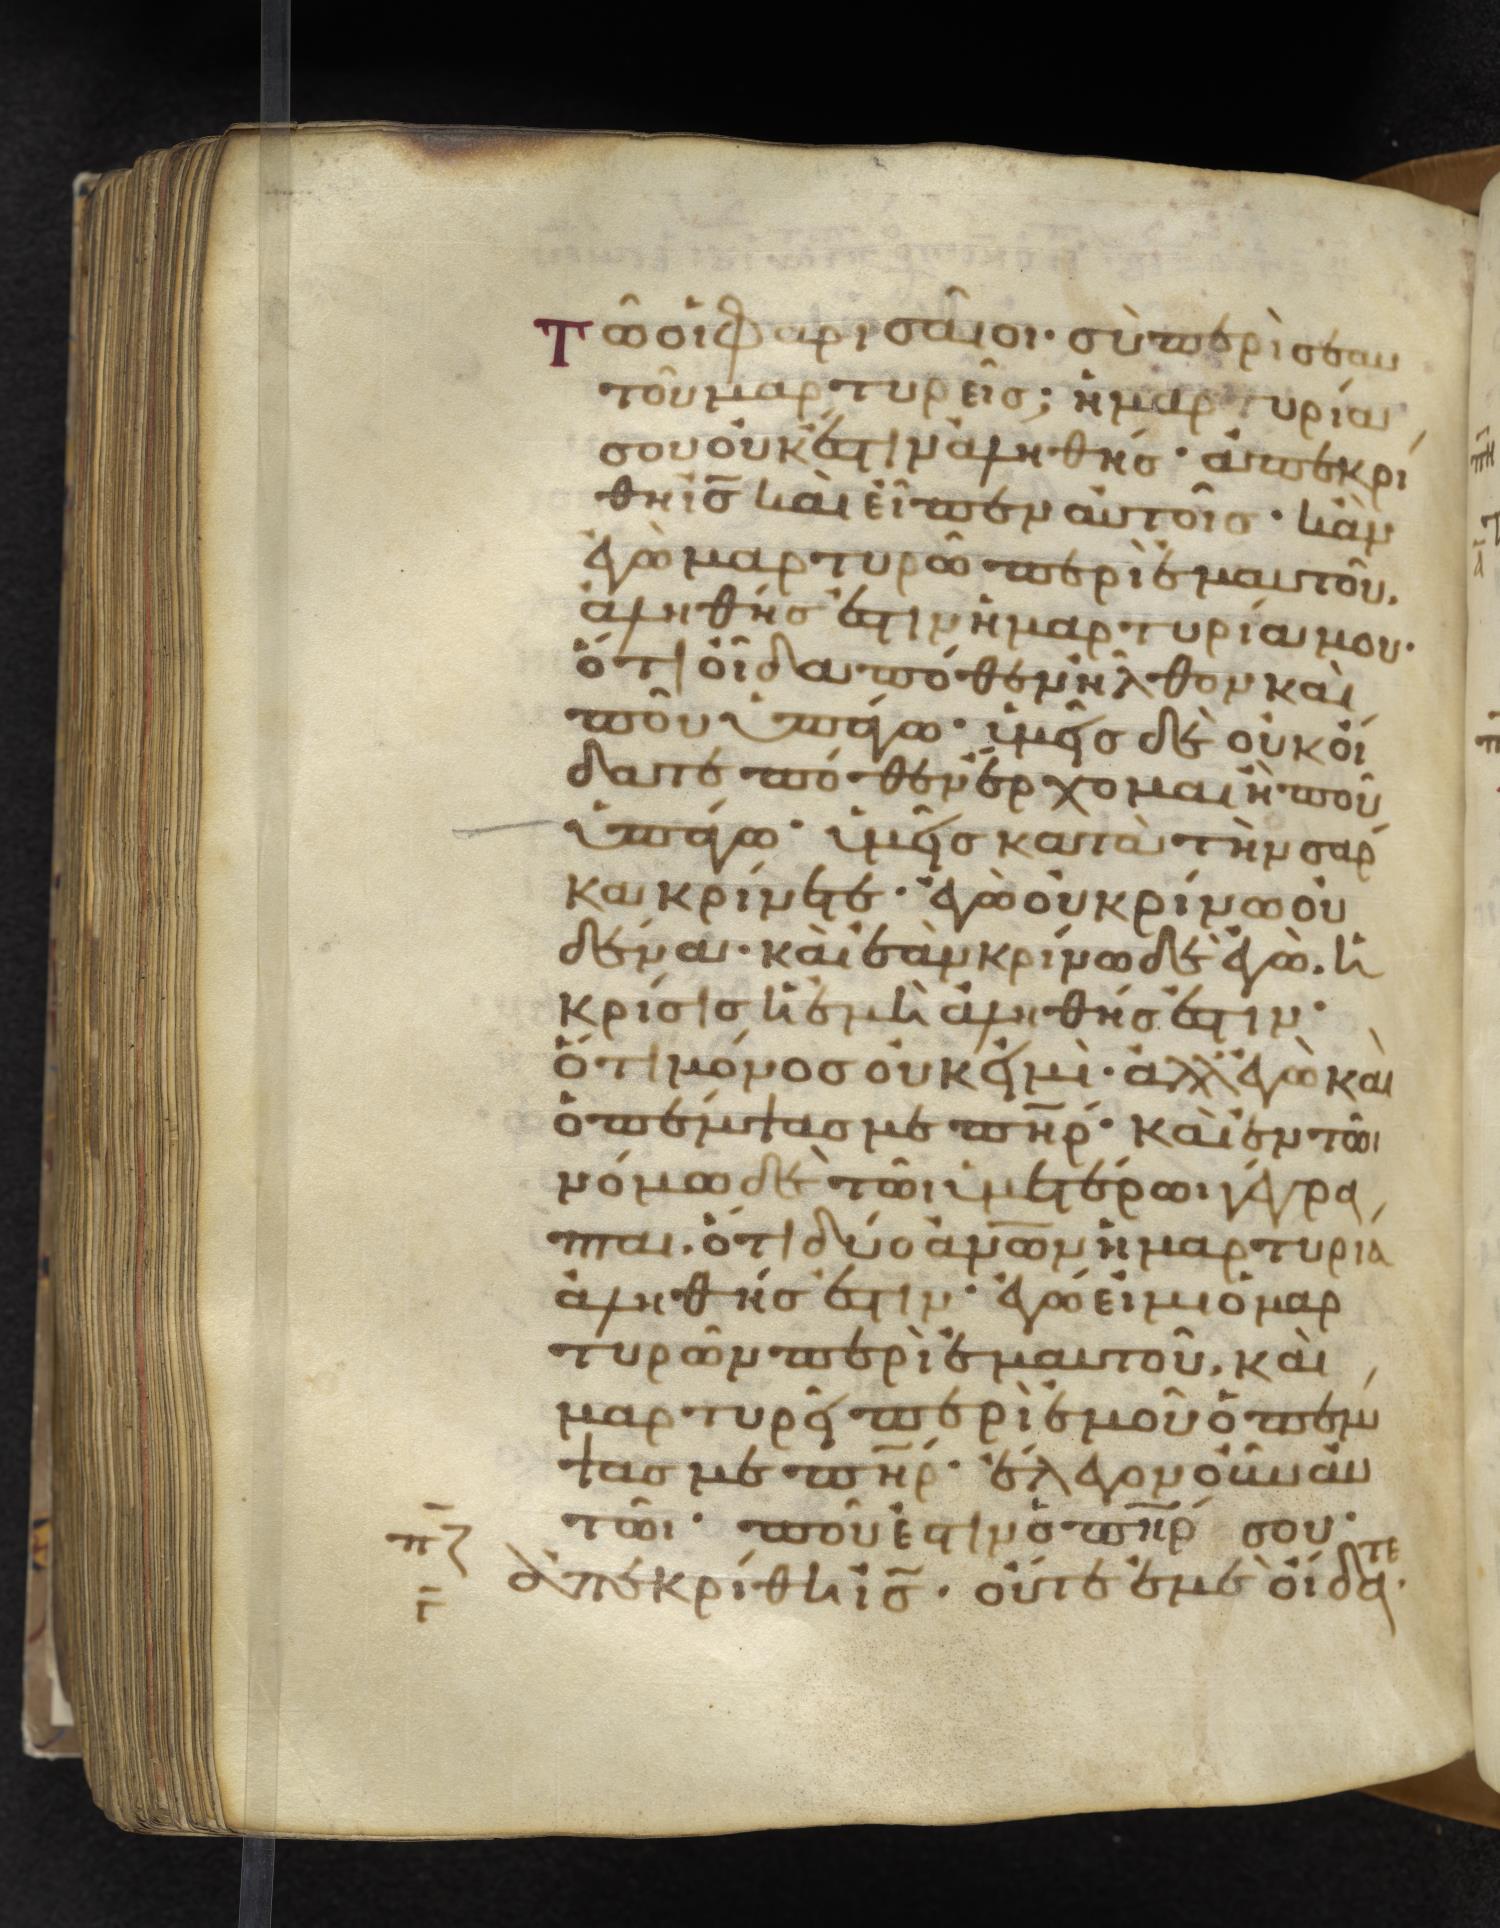 τῶ οἱ φαρισαῖοι· σὺ περὶ σεαυ
τοῦ μαρτυρεῖς; ἡ μαρτυρία
σου οὐκ ἔστιν ἀληθής· ἀπεκρί
θη ἰ̅ς̅ καὶ εἶπεν αὐτοῖς· κἂν
ἐγὼ μαρτυρῶ περὶ ἐμαυτοῦ,
ἀληθής ἐστιν ἡ μαρτυρία μου·
ὅτι οἶδα πόθεν ἦλθον καὶ
ποῦ ὑπάγω· ὑμεῖς δὲ οὐκ οἴ
δατε πόθεν ἔρχομαι ἢ ποῦ
ὑπάγω· ὑμεῖς κατὰ τὴν σάρ
κα κρίνετε· ἐγὼ οὐ κρίνω οὐ
δένα· καὶ ἐὰν κρίνω δὲ ἐγὼ, ἡ
κρίσις ἡ ἐμὴ ἀληθής ἐστιν·
ὅτι μόνος οὐκ εἰμὶ· ἀλλ' ἐγὼ καὶ
ὁ πέμψας με π̅η̅ρ̅· καὶ ἐν τῶι
νόμω δὲ τῶι ὑμετέρωι γέγρα
πται, ὅτι δύο α̅ν̅ω̅ν̅ ἡ μαρτυρία
ἀληθής ἐστιν· ἐγώ εἰμι ὁ μαρ
τυρῶν περὶ ἐμαυτοῦ, καὶ
μαρτυρεῖ περὶ ἐμοῦ ὁ πέμ
ψας με π̅η̅ρ̅· ἔλεγον οὖν αὐ
τῶι· ποῦ ἐστιν ὁ π̅η̅ρ̅ σου·
π̅ζ̅ ἀπεκρίθη ἰ̅ς̅· οὔτε ἐμὲ οἴδατε·
γ̅